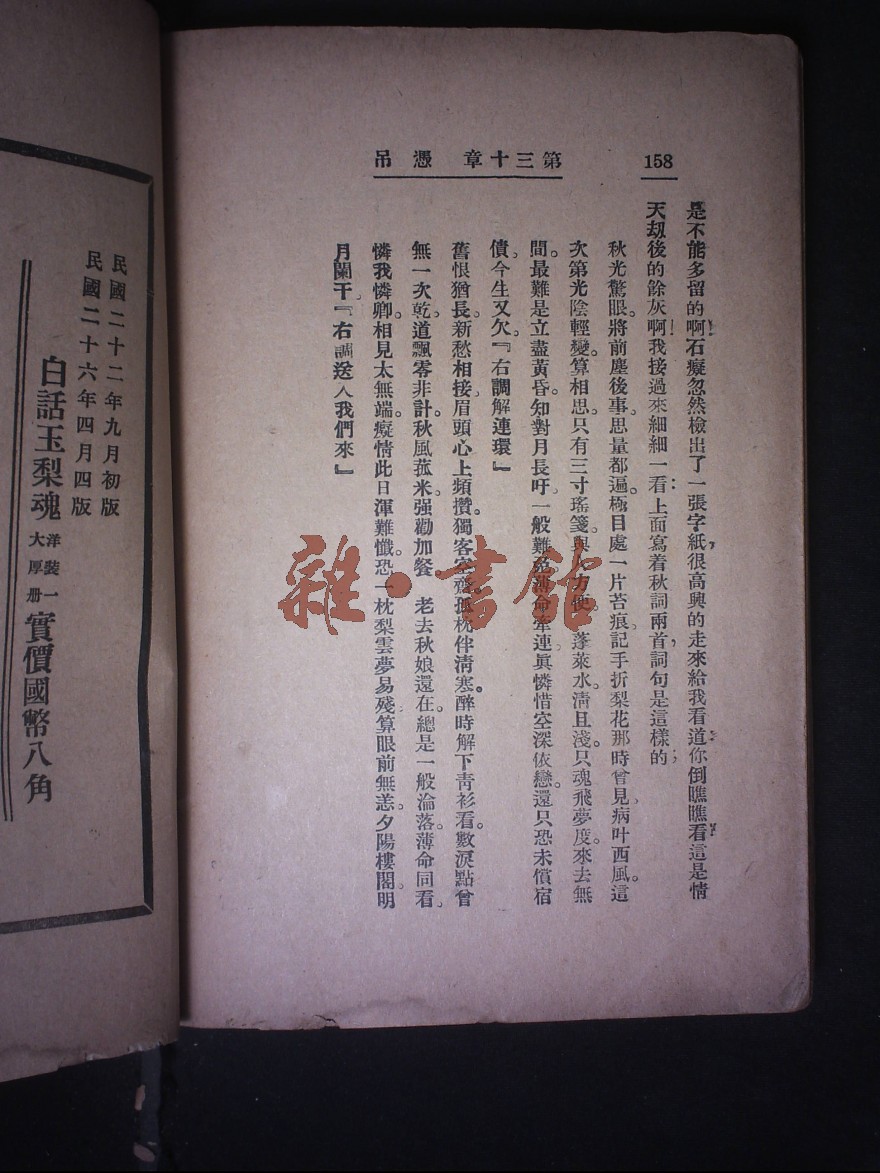 158
第三十章　憑弔
是不能多留的啊石癡忽然檢出了一張字紙很高興的走來給我看道你倒瞧瞧看這是情
天刼後的餘灰啊我接過來細細一看上面寫着秋詞兩首詞句是這樣的
秋光驚眼。將前塵後事。思量都遍。極目處一片苔痕記手折梨花那時曾見。病叶西風。這
次第光陰輕變。算相思。只有三寸瑤箋。與人方便。蓬萊水淸且淺。只魂飛夢度。來去無
間。最難是立盡黃昏。知對月長吁。一般難免薄命牽連。眞憐惜空深依戀。還只恐未償宿
債。今生又欠。『右調解連環』
舊恨猶長。新愁相接。眉頭心上頻攢。獨客空齋。孤枕伴清寒。醉時解下靑衫看。數淚點曾
無一次乾。道飄零非計。秋風菰米。强勸加餐　老去秋娘還在。總是一般淪落。薄命同看。
憐我憐卿。相見太無端。癡情此日渾難懺。恐一枕梨雲夢易殘。算眼前無恙。夕陽樓閣。明
月闌干。『右調送入我們來』
民國二十二年九月初版
民國二十六年四月四版
白話玉梨魂 洋裝一大厚册 實價國幣八角
雜·書館